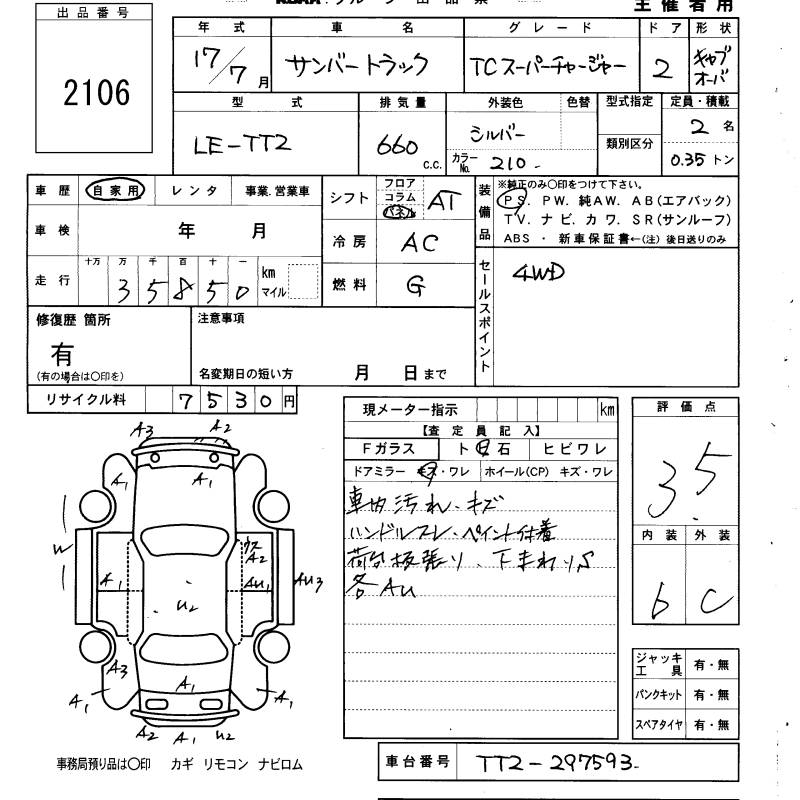 主催者用
出品番号
2106
年式 車名 グレード ドア 形状
17/7月 サンバートラック TCスーパーチャージャー 2 キャブオーバ
型式 排気量 外装色 色替 型式指定 定員・積載
LE-TT2 660 c.c. シルバー 類別区分 2名
カラーNo. 210 0.35トン
車歴 自家用 レンタ 事業.営業車
シフト フロア コラム パネル AT
装備品 ※純正のみ〇印をつけて下さい。
PS. PW. 純AW. AB(エアバック)
TV. ナビ. カワ. SR(サンルーフ)
ABS ・ 新車保証書←(注) 後日送りのみ
車検 年 月
冷房 AC
走行 十万 万 千 百 十 一
35850 km マイル
燃料 G
セールスポイント 4WD
修復歴 箇所
有
(有の場合は〇印を)
注意事項
名変期日の短い方 月 日まで
リサイクル料 7530円
現メーター指示 km
【査定員記入】
Fガラス ト日石 ヒビワレ
ドアミラー キズ・ワレ ホイール(CP) キズ・ワレ
車内汚れ.キズ
ハンドルスレ.ペイント付着
荷台板張り、下まわりS
各AU
評価点
3.5
内装 外装
b C
A3 A2
A1 A1
W ウス A2
A1 AU1 AU3
U2
A3
A1 A1 A1
A2 A1 U2
ジャッキ工具 有・無
パンクキット 有・無
スペアタイヤ 有・無
事務局預り品は〇印 カギ リモコン ナビロム
車台番号 TT2-297593